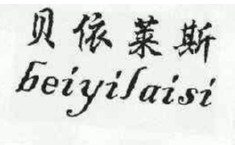 贝依莱斯
beiyilaisi